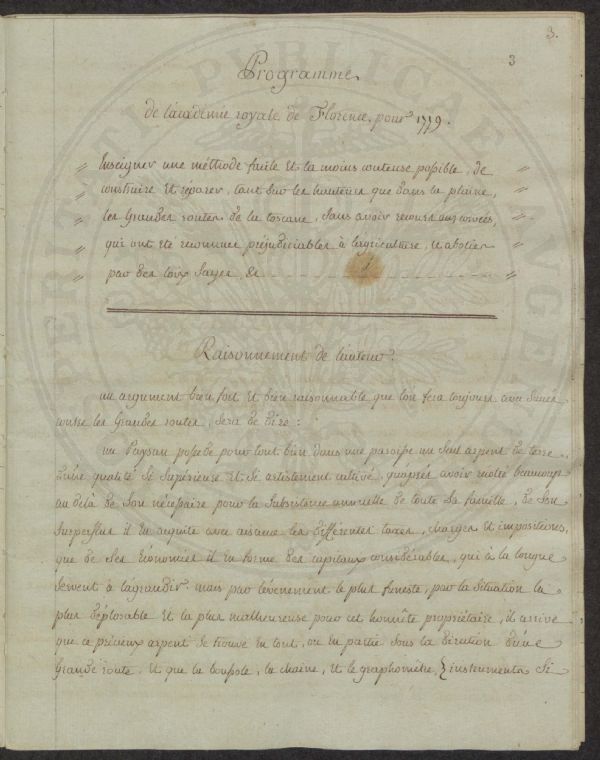 3.
3
Programme
de l'académie royale de Florence, pour 1779.
" Enseigner une méthode facile Et la moins couteuse possible, de "
" construire Et réparer, tant Sur les hauteurs que dans la plaine, "
" les Grandes routes de la toscane, Sans avoir recours aux corvées, "
" qui ont été reconnues préjudiciables à l'agriculture, Et abolies "
" par des loix Sages, &c "
Raisonnement de l'auteur.
un argument bien fort Et bien raisonnable que l'on fera toujours avec Succès
contre les Grandes routes, Sera de dire :
un Paysan possede pour tout bien dans une paroisse un Seul arpent de terre
d'une qualité Si Supérieure et Si artistement cultivé, qu'après avoir beaucoup
au delà de Son nécessaire pour la Subsistance annuelle de toute Sa famille, de Son
Superflus il En aquite avec aisance les différentes taxes, charges Et impositions,
que de Ses Economies il En forme des capitaux considérables, qui à la longue
Servent à l'agrandir. mais par l'évenement le plus funeste, par la Situation la
plus déplorable Et la plus malheureuse pour cet honnête propriétaire, il arrive
que ce précieux arpent Se trouve En tout, ou En partie Sous la direction d'une
Grande route, Et que la boussole, la chaine, Et le graphomètre, instruments Si